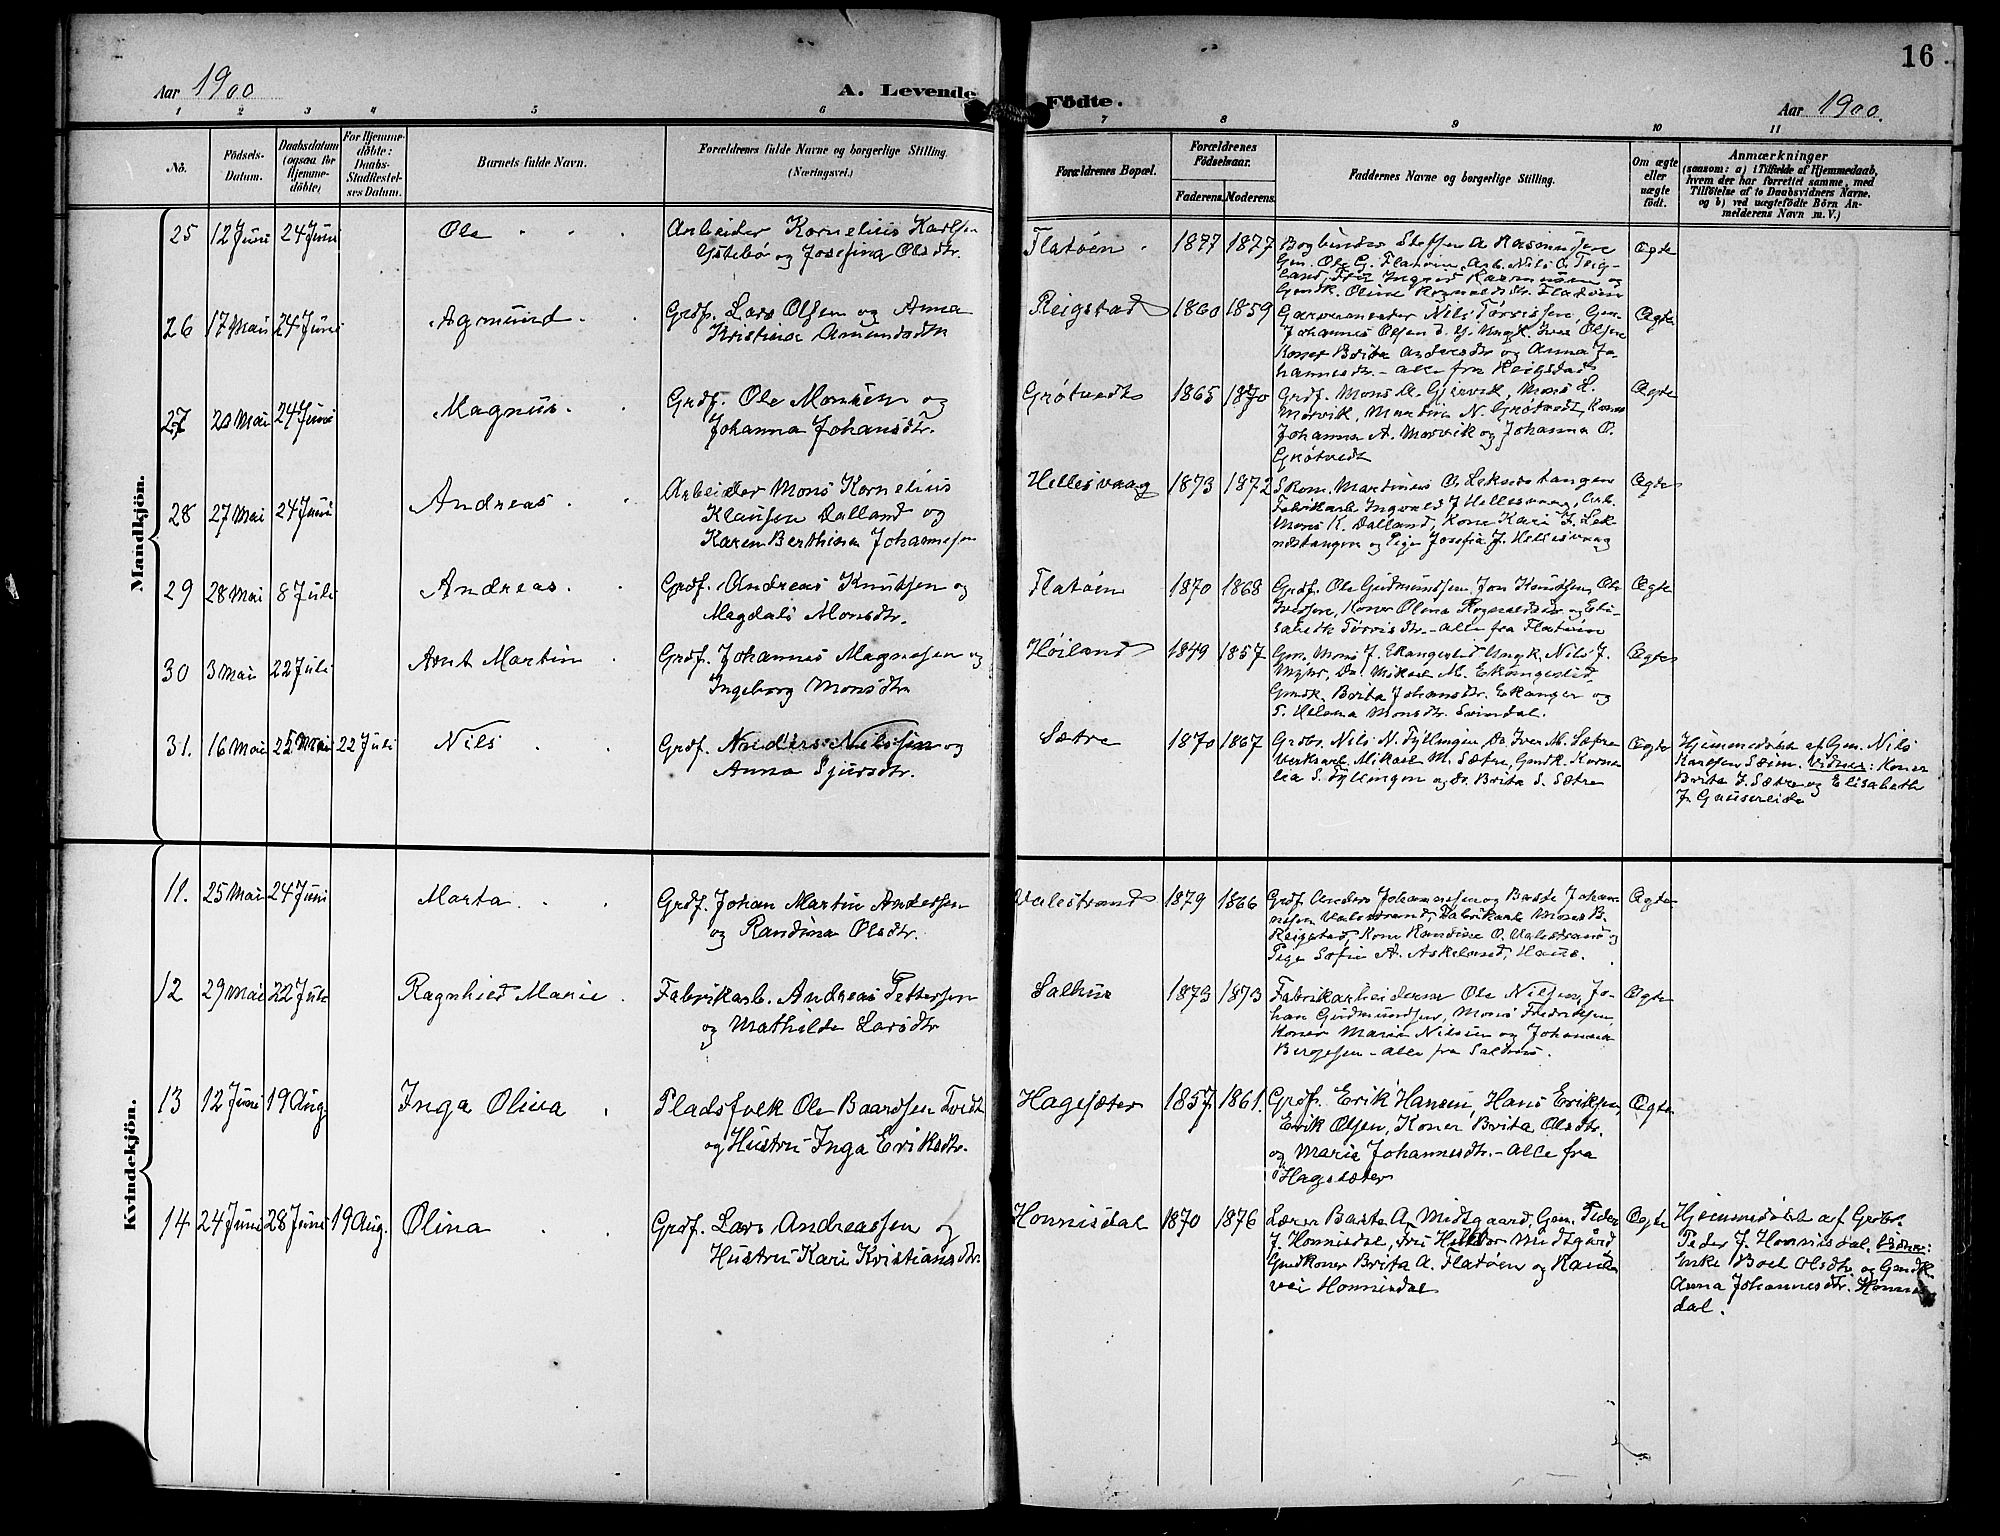 16
Aar 1900
A. Levende Födte.
Aar 1900.
1 2 3 4 5 6 7 8 9 10 11
No.
Födsels-
Datum.
Daabsdatum
(ogsaa for
Hjemme-
döbte)
For Hjemme-
döbte:
Daabs-
Stadfæstel-
ses Datum.
Barnets fulde Navn.
Forældrenes fulde Navne og borgerlige Stilling.
(Næringsvei.)
Forældrenes Bopæl.
Forældrenes
Fødselsaar.
Faderens. Moderens.
Faddernes Navne og borgerlige Stilling.
Om ægte
eller
uægte
födt.
Anmærkninger
(saasom: a) i Tilfælde af Hjemmedaab,
hvem der har forrettet samme, med
Tilföielse af to Daabsvidners Navne.
og b) ved uægtefödte Börn An-
melderens Navn m. V.)
Mandkjön.
25 12 Juni 24 Juni Ole
Arbeider Kornelius Karlsen
Ystebø og Josefina Olsdtr.
Flatøen 1877 1877
Bogbinder Steffen A. Rasmussen
Gm. Ole G. Flatøen, Arb. Nils O. Teig-
land, Ingrid Rasmussen og
Gmdk. Oline Ragnvaldsdtr. Flatøen
Ægte
26 17 Mai 24 Juni Agmund.
Grdf. Lars Olsen og Anna
Kristina Amundsdtr
Reigstad 1860 1859
Garvermester Nils Torrissen, Gm.
Johannes Olsen d. y. Ungk. Iver Olsen
Koner Brita Andersdtr og Anna Jo-
hannesdtr. – alle fra Reigstad
Ægte
27 20 Mai 24 Juni Magnus.
Grdf. Ole Monsen og
Johanna Johansdtr.
Grøtvedt 1865 1870
Grdf. Mons A. Gjervik, Mons L.
Morvik, Martin N. Grøtvedt, Koner
Johanna A. Morvik og Johanna O.
Grøtvedt
Ægte
28 27 Mai 24 Juni Andreas
Arbeider Mons Kornelius
Klausen Dalland og
Karen Berthina Johannesen
Hellesvaag 1873 1872
Skom. Martinus O. Leknestangen
Fabrikarb. Ingvald J Hellesvaag, Arb.
Mons K. Dalland, Kone Kari J. Lek-
nestangen og Pige Josefia J. Hellesvaag
Ægte
29 28 Mai 8 Juli Andreas.
Grdf. Andreas Knutsen og
Magdali Monsdtr.
Flatøen 1870 1868
Grdf. Ole Gudmundsen, Jon Knudsen, Ole
Iversen, Koner Olina Ragnvaldsdtr og Eli-
sabeth Torrisdtr. – alle fra Flatøen
Ægte
30 3 Mai 22 Juli Arnt Martin
Grdf. Johannes Magnesen og
Ingeborg Monsdtr
Høiland 1849 1857
Gm. Mons J. Ekangerlid Ungk. Nils J.
Myhr, Do. Mikael M. Ekangerlid,
Gmdk. Brita Johansdtr. Ekanger og
P. Helena Monsdtr. Svindal.
Ægte
31. 16 Mai 25 Mai 22 Juli Nils
Grdf. Anders Nilssen og
Anna Sjursdtr.
Sætre 1870 1867
Grdbr. Nils N. Fyllingen, Do. Iver M. Sætre
Verksarb. Mikael M. Sætre, Gmdk. Korne-
lia S. Fyllingen og Do. Brita S. Sætre
Ægte
Hjemmedøbt af Gm. Nils
Karlsen Sæim. Vidner: Koner
Brita J. Sætre og Elisabeth
J. Gausereide
Kvindekjön.
11. 25 Mai 24 Juni Marta
Grdf. Johan Martin Andersen
og Randina Olsdtr.
Valestrand 1879 1866
Grdf. Anders Johannesen og Baste Johan-
nesen Valestrand, Fabrikarb. Mons B.
Reigstad, Kone Randine O. Valestrand og
Pige Sofie A. Askeland, Haus.
Ægte
12 29 Mai 22 Juli Ragnhild Marie
Fabrikarb. Andreas Pettersen
og Mathilde Larsdtr
Salhus 1873 1873
Fabrikarbeiderne Ole Nilsen, Jo-
han Gudmundsen, Mons Fredriksen
Koner Marie Nilsen og Johanna
Børgesen – alle fra Salhus.
Ægte
13 12 Juni 19 Aug. Inga Olina
Pladsfolk Ole Baardsen Tvedt
og Hustru Inga Eriksdtr.
Hagesæter 1857. 1861.
Grdf. Erik Hansen, Hans Eriksen,
Erik Olsen, Koner Brita Olsdtr.
og Marie Johannesdtr. – alle fra
Hagesæter
Ægte
14 24 Juni 28 Juni 19 Aug. Olina
Grdf. Lars Andreassen og
Hustru Kari Kristiansdtr
Honnisdal 1870 1876
Lærer Baste A. Midtgaard, Gm. Peder
J. Honnisdal, fru Midtgård
Gmdkoner Brita A. Flatøen og Rand-
vei Honnisdal
Ægte
Hjemmedøbt af Grdbr.
Peder J. Honnisdal. Vidner:
Enke Boel Olsdtr og Gmdk.
Anna Johannesdtr. Honnis-
dal.